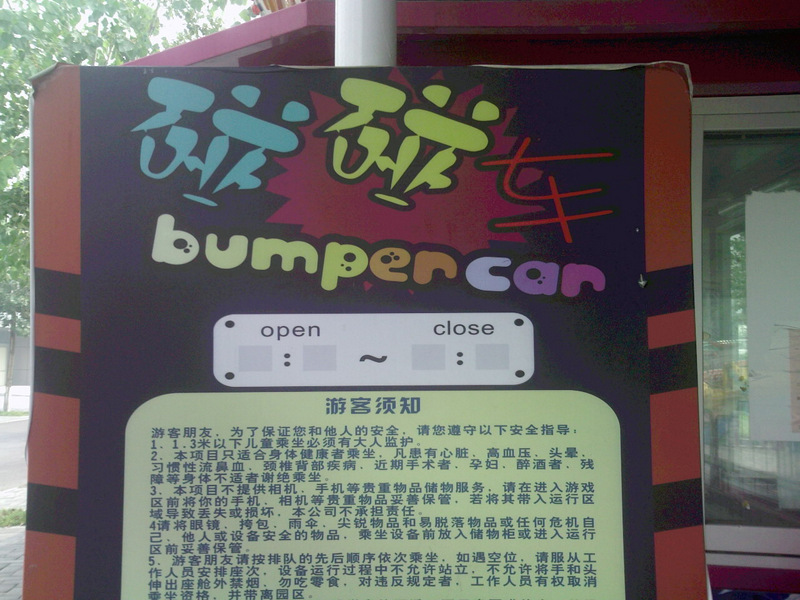 碰碰车
bumper car
open close
: ~ :
游客须知
游客朋友，为了保证您和他人的安全，请您遵守以下安全指导：
1、1.3米以下儿童乘坐必须有大人监护。
2、本项目只适合身体健康者乘坐，凡患有心脏、高血压、头晕、
习惯性流鼻血、颈椎背部疾病、近期手术者、孕妇、醉酒者、残
障等身体不适者谢绝乘坐。
3、本项目不提供相机、手机等贵重物品储物服务，请在进入游戏
区前将你的手机、相机等贵重物品妥善保管，若将其带入运行区
域导致丢失或损坏，本公司不承担责任。
4请将眼镜、挎包、雨伞、尖锐物品和易脱落物品或任何危机自
己、他人或设备安全的物品，乘坐设备前放入储物柜或进入运行
区前妥善保管。
5、游客朋友请按排队的先后顺序依次乘坐，如遇空位，请服从工
作人员安排座次，设备运行过程中不允许站立，不允许将手和头
伸出座舱外禁烟、勿吃零食，对违反规定者，工作人员有权取消
乘坐资格，并带离园区。